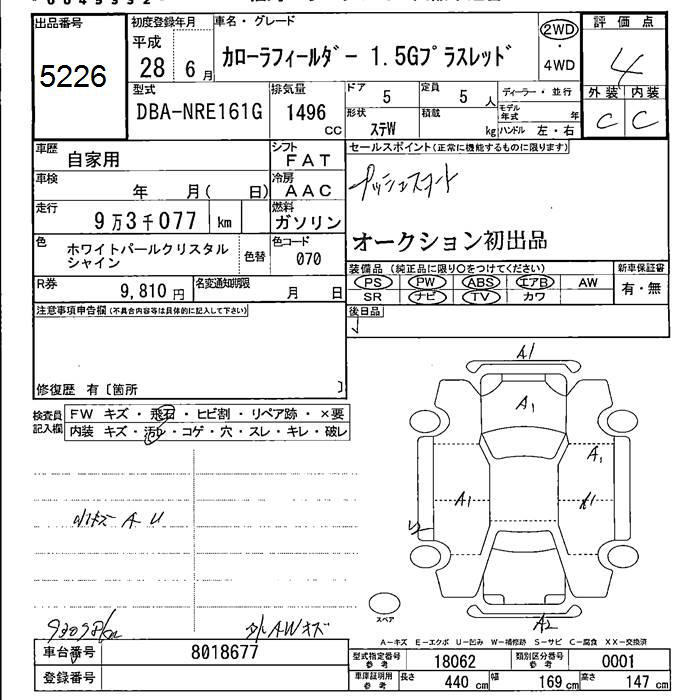 出品番号
5226
初度登録年月
平成
28 6月
車名・グレード
カローラフィールダー 1.5Gプラスレッド
2WD
・
4WD
評価点
4
外装 内装
C C
型式
DBA-NRE161G
排気量
1496
CC
ドア 5
定員 5人
形状 ステW
積載 kg
ディーラー・並行
モデル年式 年
ハンドル 左・右
車歴 自家用
シフト
FAT
車検 年 月( 日)
冷房
AAC
走行
9万3千077 km
燃料
ガソリン
色 ホワイトパールクリスタル
シャイン
色替
色コード
070
R券
9,810円
名変通知期限
月 日
セールスポイント(正常に機能するものに限ります)
プッシュスタート
オークション初出品
装備品(純正品に限り○をつけてください)
新車保証書
PS PW ABS エアB AW
SR ナビ TV カワ
有・無
後日品
注意事項申告欄(不具合内容等は具体的に記入して下さい)
修復歴 有〔箇所 〕
検査員
記入欄
FW キズ・飛石・ヒビ割・リペア跡・×要
内装 キズ・汚れ・コゲ・穴・スレ・キレ・破レ
A1
A1
A1
A1
A2
スペア
A−キズ E−エクボ U−凹み W−補修跡 S−サビ C−腐食 XX−交換済
車台番号 8018677
登録番号
型式指定番号
参考
18062
類別区分番号
参考
0001
車庫証明用
参考
長さ 440 cm 幅 169 cm 高さ 147 cm